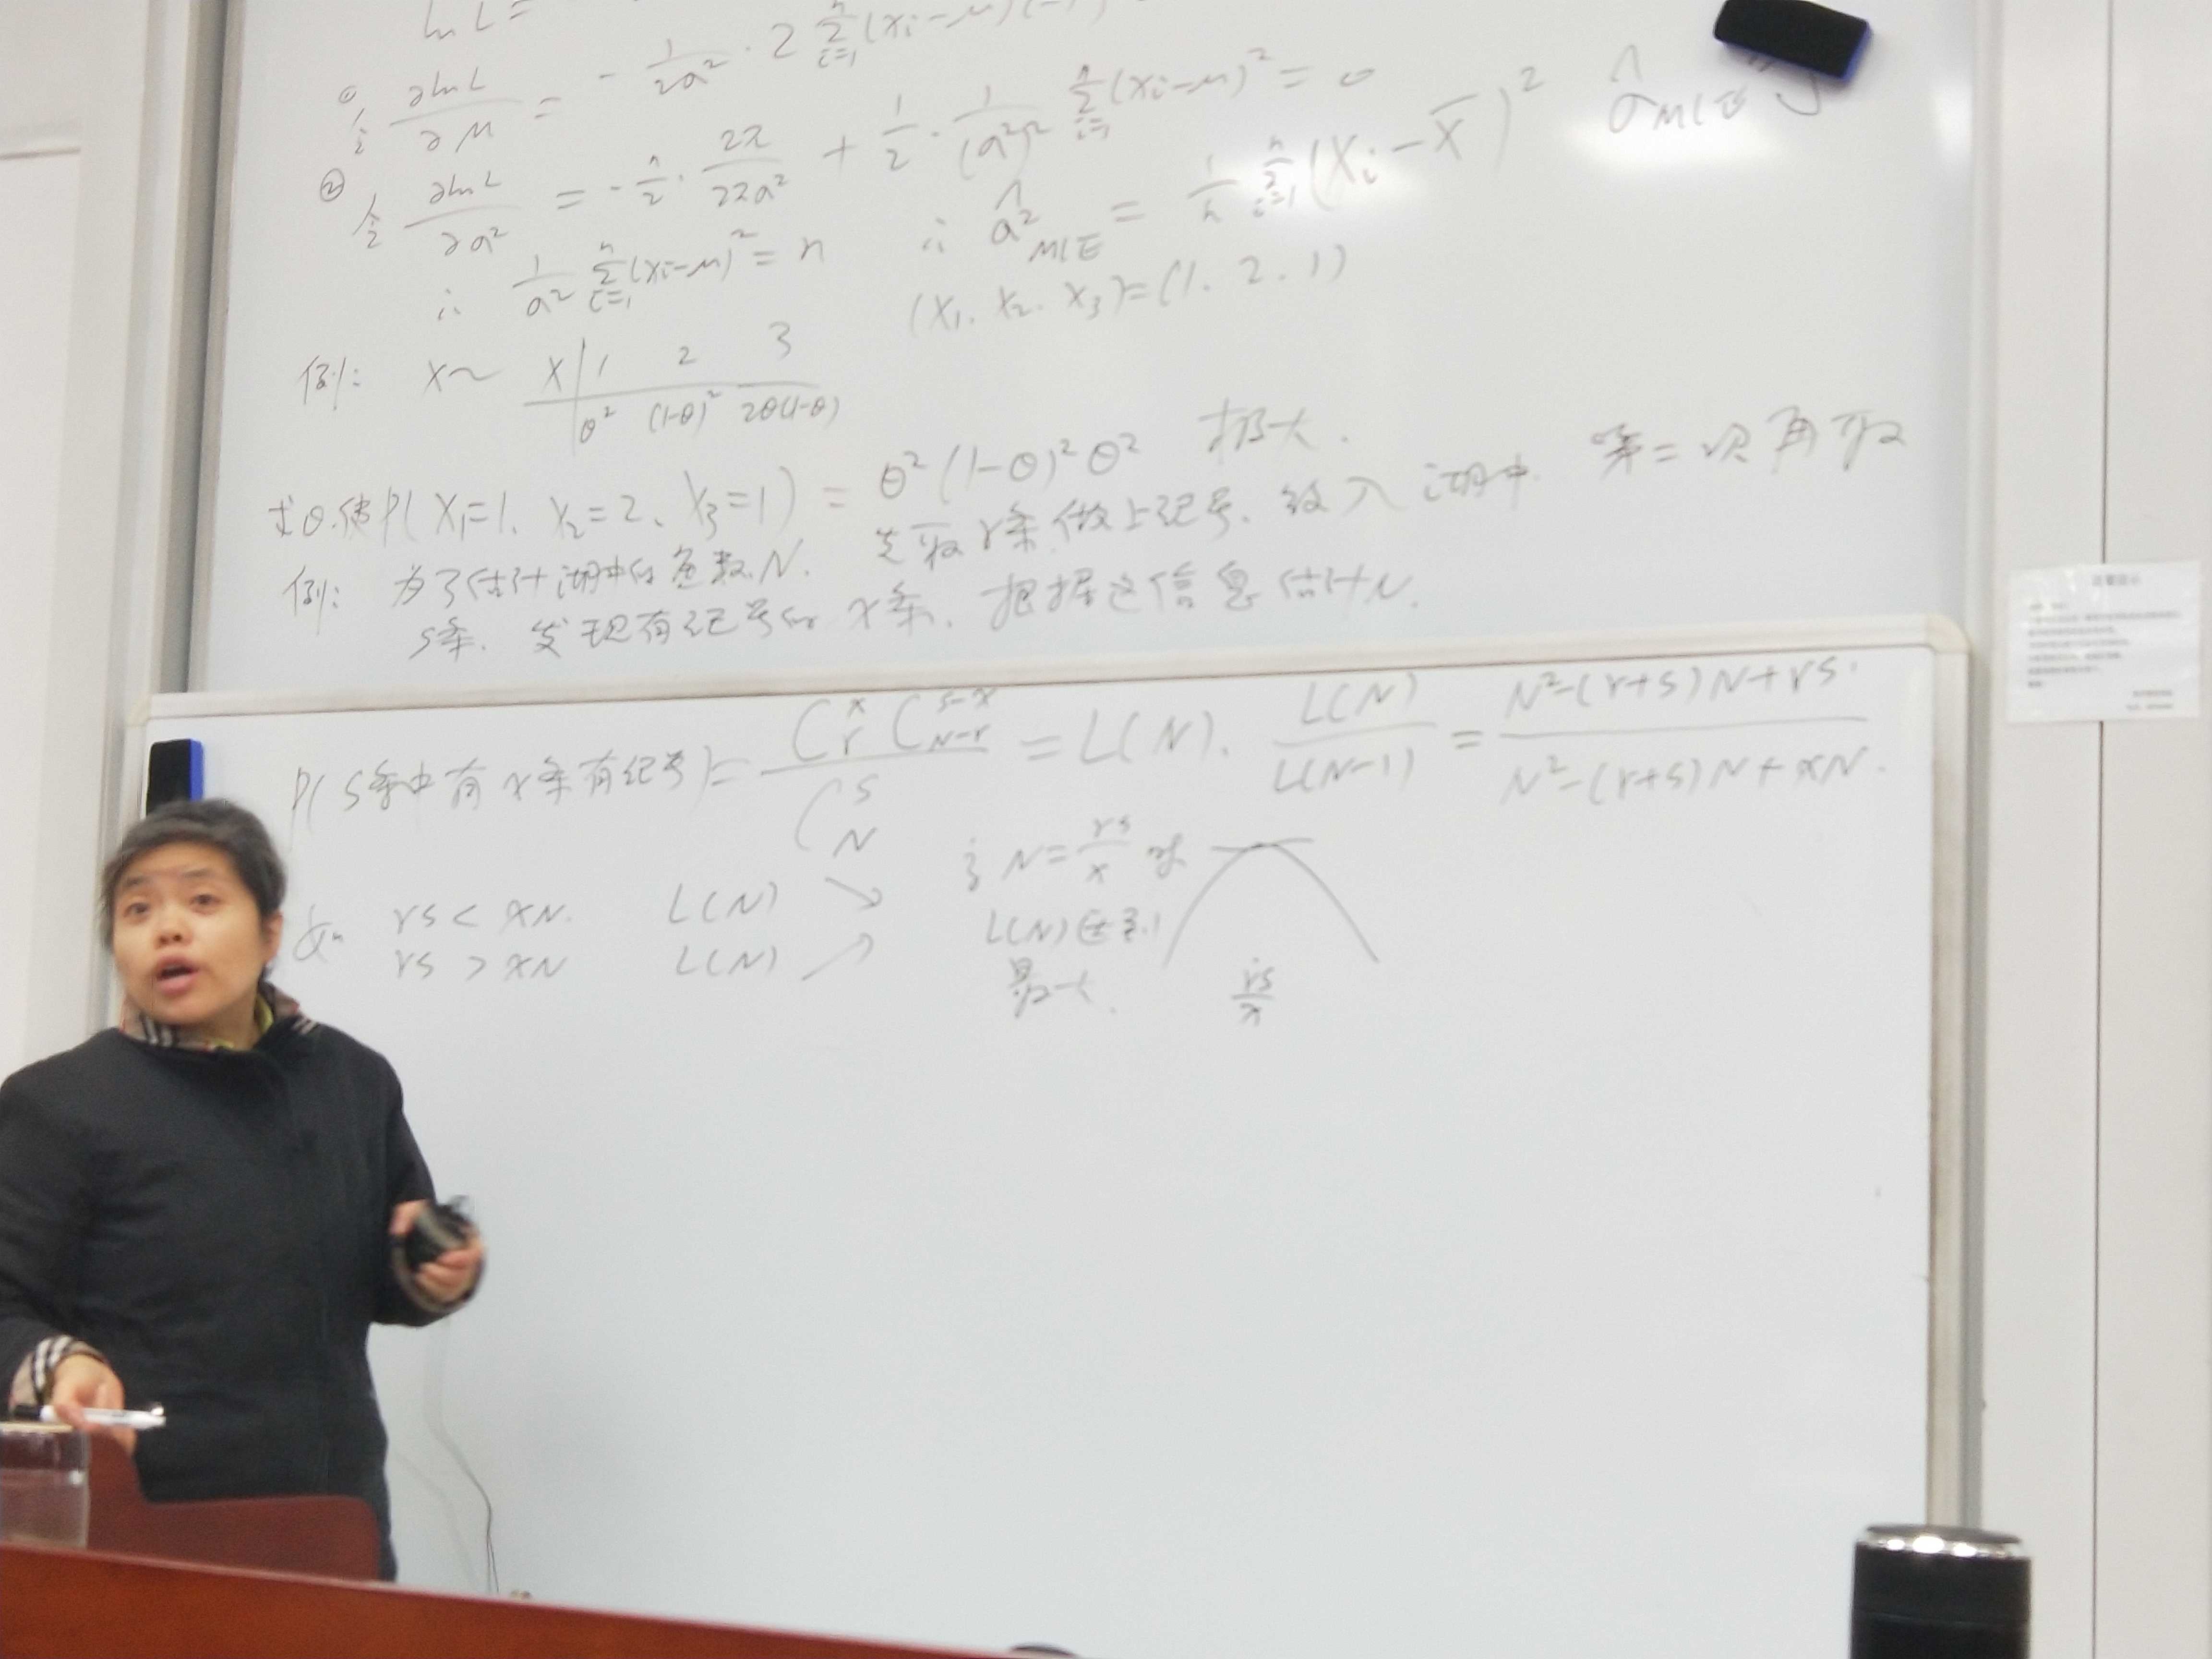 ln L =
① 令 ∂lnL/∂μ = - 1/2σ² · 2 Σ_{i=1}^{n} (xi-μ)(-1)
② 令 ∂lnL/∂σ² = - n/2 · 2π/2πσ² + 1/2 · 1/(σ²)² Σ_{i=1}^{n} (xi-μ)² = 0
∴ 1/σ² Σ_{i=1}^{n} (xi-μ)² = n ∴ σ̂²_MLE = 1/n Σ_{i=1}^{n} (Xi-X̄)² σ̂_MLE
(X₁. X₂. X₃)=(1. 2. 1)
例: X~ X | 1 2 3
θ² (1-θ)² 2θ(1-θ)
求θ.使P(X₁=1、X₂=2、X₃=1) = θ²(1-θ)²θ² 极大.
例: 为了估计湖中的鱼数N. 先取r条做上记号.放入湖中.第二次再取
s条. 发现有记号的x条. 根据这信息估计N.
P(s条中有x条有记号)= C_r^x C_{N-r}^{s-x} / C_N^s = L(N). L(N)/L(N-1) = N²-(r+s)N+rs. / N²-(r+s)N+xN.
如 rs < xN. L(N) ↘
rs > xN L(N) ↗
当 N= rs/x 时
L(N)达到
最大.
rs/x